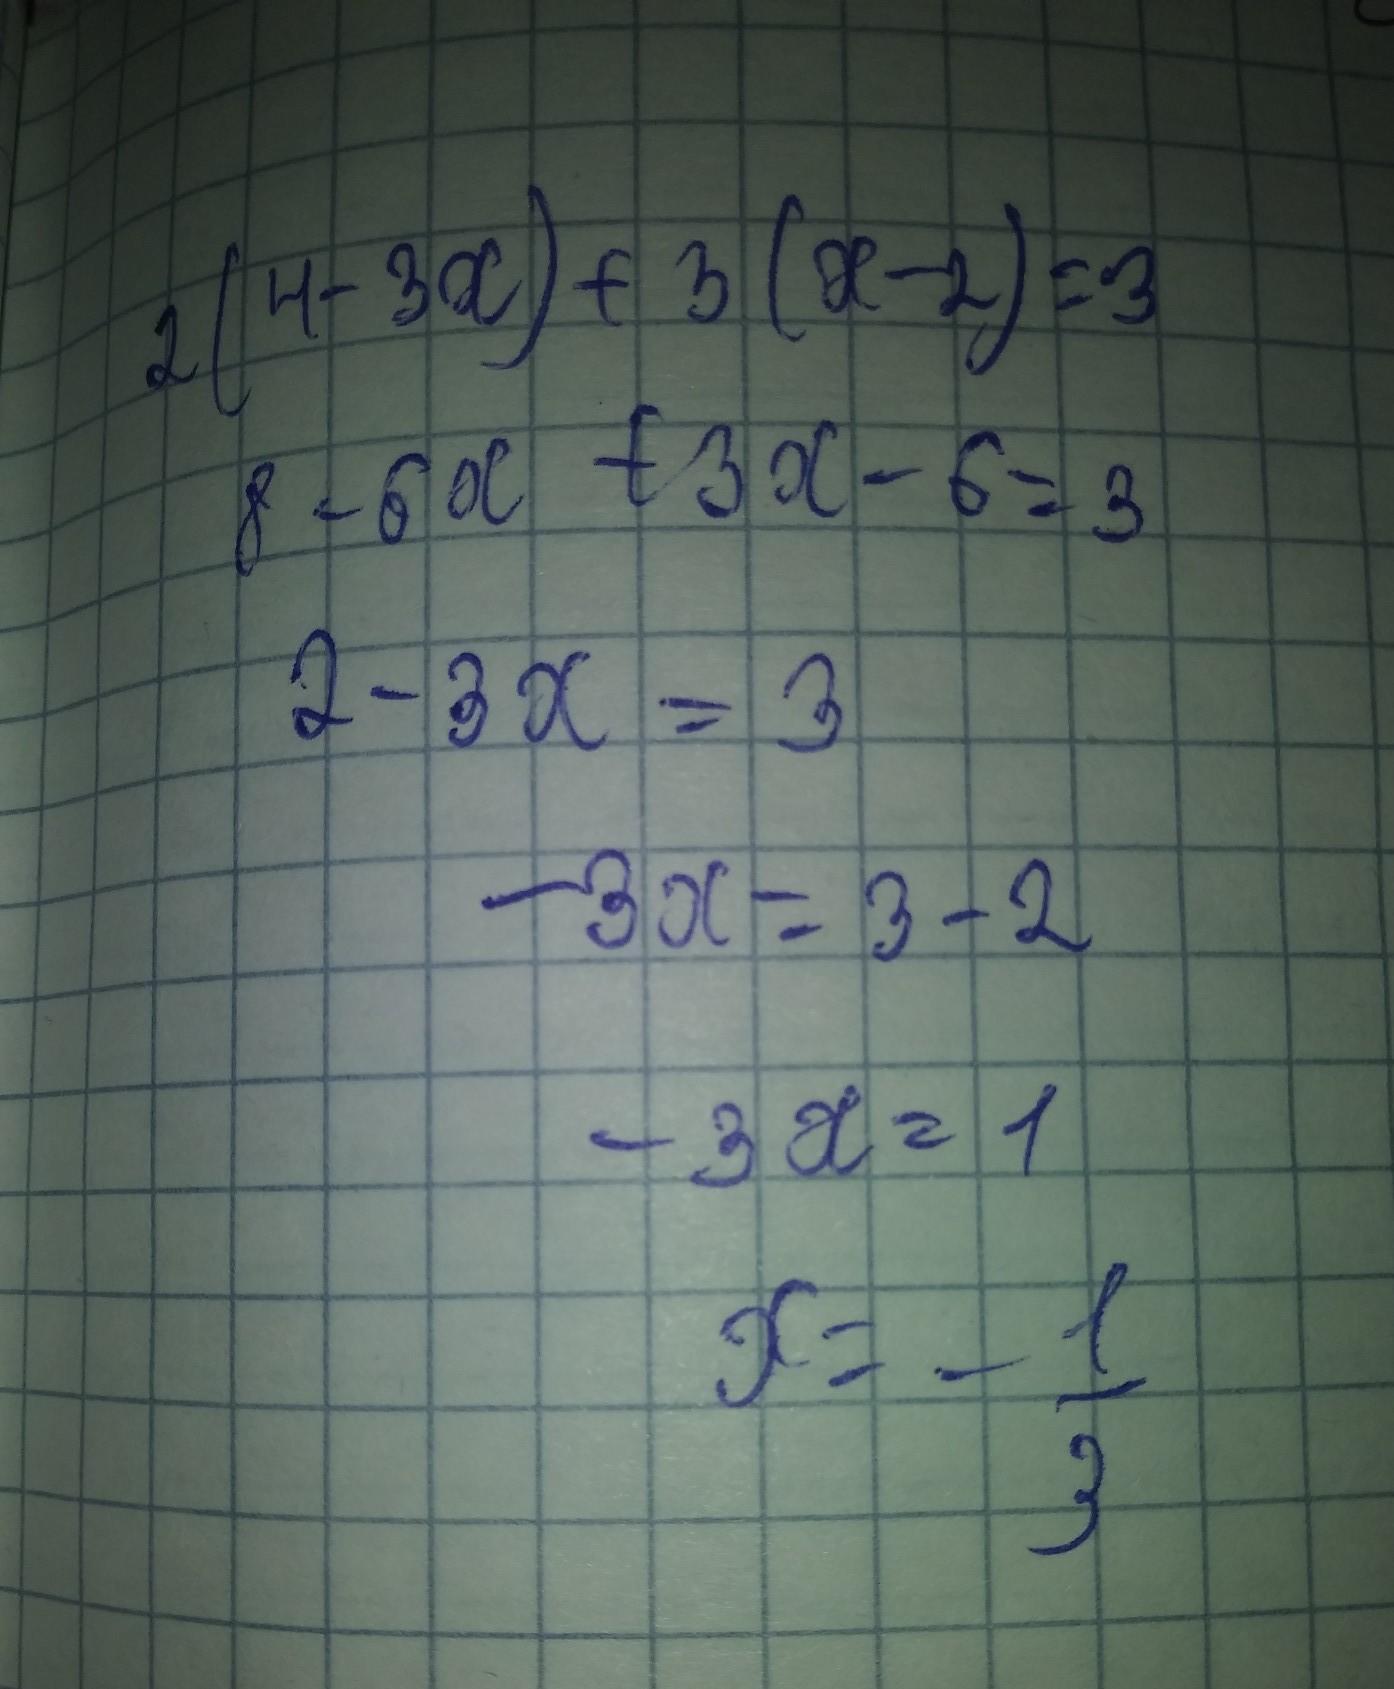 2(4-3x)+3(x-2)=3
8-6x+3x-6=3
2-3x=3
-3x=3-2
-3x=1
x=-1/3